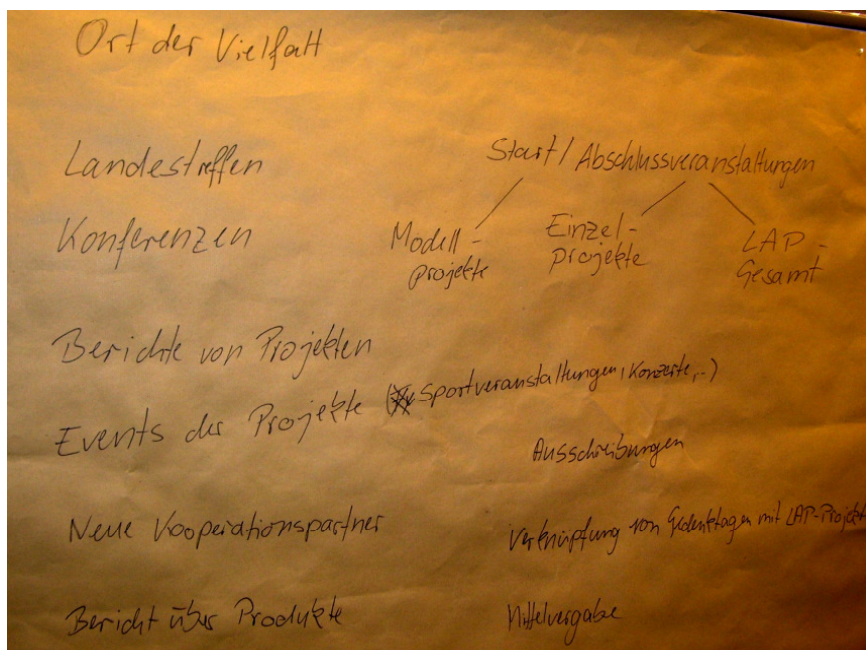 Ort der Vielfalt
Landestreffen
Start / Abschlussveranstaltungen
Konferenzen
Modell-
projekte
Einzel-
projekte
LAP-
Gesamt
Berichte von Projekten
Events der Projekte (Sportveranstaltungen, Konzerte,..)
Ausschreibungen
Neue Kooperationspartner
Verknüpfung von Gedenktagen mit LAP-Projekt
Bericht über Produkte
Mittelvergabe